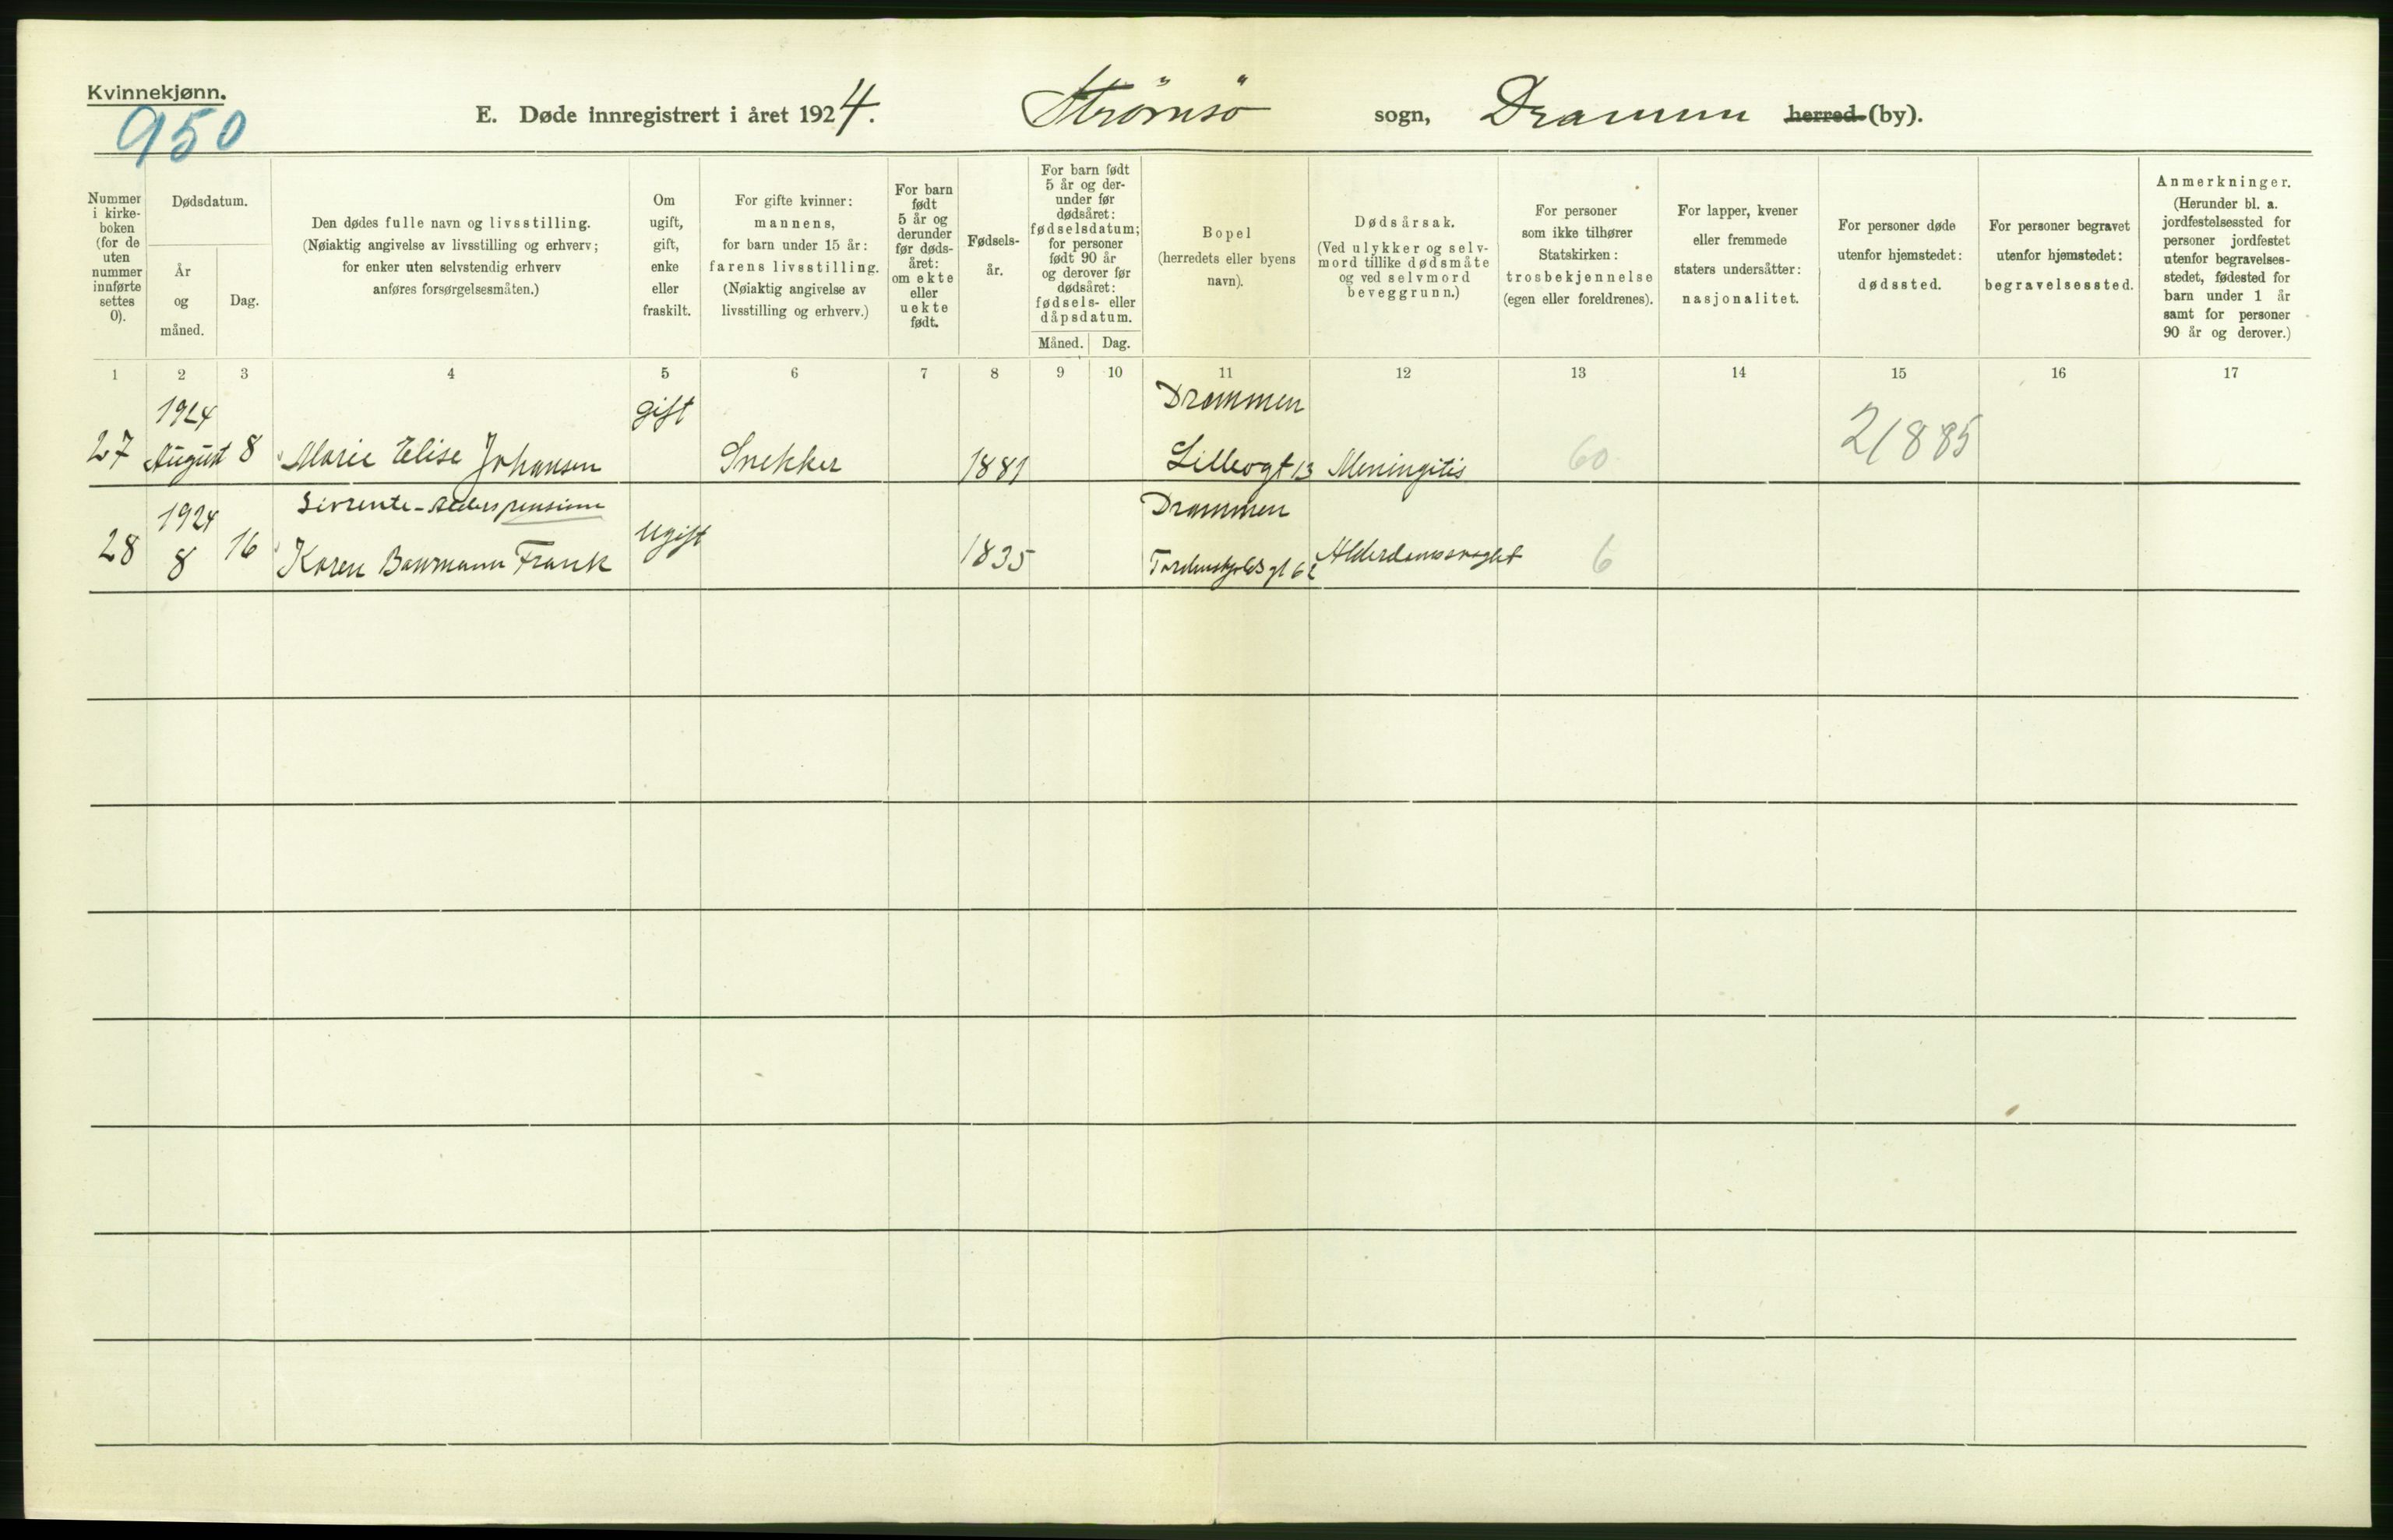 Kvinnekjønn.
950
E. Døde innregistrert i året 1924. Strømsö sogn, Drammen herred (by).
Nummer i kirkeboken (for de uten nummer innførte settes 0).
Dødsdatum.
År og måned.
Dag.
Den dødes fulle navn og livsstilling.
(Nøiaktig angivelse av livsstilling og erhverv;
for enker uten selvstendig erhverv
anføres forsørgelsesmåten.)
Om
ugift,
gift,
enke
eller
fraskilt.
For gifte kvinner:
mannens,
for barn under 15 år:
farens livsstilling.
(Nøiaktig angivelse av
livsstilling og erhverv.)
For barn
født
5 år og
derunder
før døds-
året:
om ekte
eller
uekte
født.
Fødsels-
år.
For barn født
5 år og der-
under før
dødsåret:
fødselsdatum;
for personer
født 90 år
og derover før
dødsåret:
fødsels- eller
dåpsdatum.
Måned. Dag.
Bopel
(herredets eller byens
navn).
Dødsårsak.
(Ved ulykker og selv-
mord tillike dødsmåte
og ved selvmord
beveggrunn.)
For personer
som ikke tilhører
Statskirken:
trosbekjennelse
(egen eller foreldrenes).
For lapper, kvener
eller fremmede
staters undersåtter:
nasjonalitet.
For personer døde
utenfor hjemstedet:
dødssted.
For personer begravet
utenfor hjemstedet:
begravelsessted.
Anmerkninger.
(Herunder bl. a.
jordfestelsessted for
personer jordfestet
utenfor begravelses-
stedet, fødested for
barn under 1 år
samt for personer
90 år og derover.)
1 2 3 4 5 6 7 8 9 10 11 12 13 14 15 16 17
1924 gift Drammen
27 August 8 Marie Elise Johansen Snekker 1881 Lilleogt 13 Meningitis 60 21885
1924 Livrente-alderspensione Drammen
28 8 16 Karen Bowmann Frank ugift 1835 Tordenskjolds gt 62 Alderdomssvaghet 6